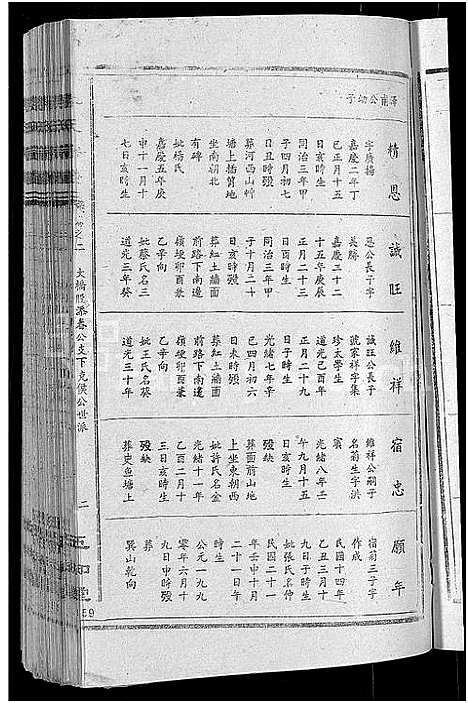 澤甫公幼子
精恩
字廣揚
嘉慶二年丁
巳正月十五
日亥時生
同治三年甲
子四月初七
日丑時殁
葬河西山幹
塘上插箕地
坐南朝北
有碑
妣楊氏
嘉慶五年庚
申十一月十
七日亥時生
誠旺
恩公長子字
長勝
嘉慶二十
十五年庚辰
正月二十三
日酉時生
同治三年甲
子十月二十
日亥時殁
葬紅土牆面
前路下南邊
嶺埂卯酉兼
乙辛向
妣蔡氏名三
道光三年癸
維祥
誠旺公長子
號家祥字集
珍太學生
道光己酉年
正月二十九
日子時生
光緒七年辛
巳四月初六
日未時殁
葬紅土牆面
前路下南邊
嶺埂卯酉兼
乙辛向
妣王氏名葵
道光三十年
宿忠
維祥公嗣子
名菊生字洪
賓
光緒八年壬
午九月十五
日亥時生
殁缺
葬面前山地
上坐東朝西
妣許氏名金
光緒十一年
乙酉二月十
三日亥時生
殁缺
葬吏魚塘上
願年
宿菊三子字
作成
民國十四年
乙丑三月十
九日子時生
妣張氏名仲
民國二十一
年壬申十月
二十一日午
時生
公元一九九
零年六月十
九日申時殁
葬
巽山乾向
卷之二
大橋股派春公支下克侯公世派
二
五知堂
59